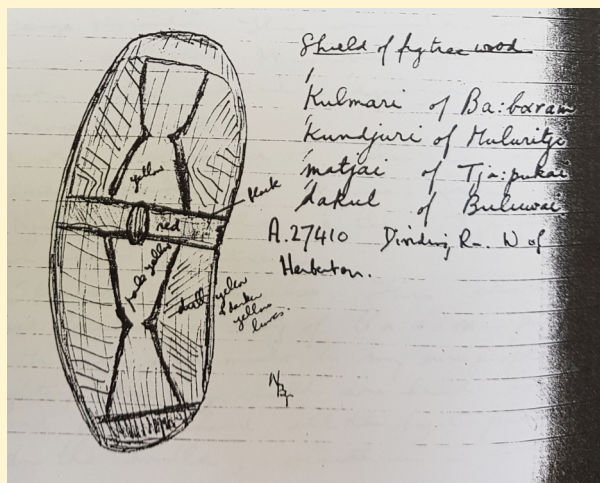 Shield of fig tree wood
Kulmari of Ba:baram
Kundjuri of Muluritji
matjai of Tja:pukai
dakul of Buluwai
A.27410 Dividing Ra. N of
Herberton.
yellow
black
red
pale yellow
dull yellow
& darker
yellow
lines